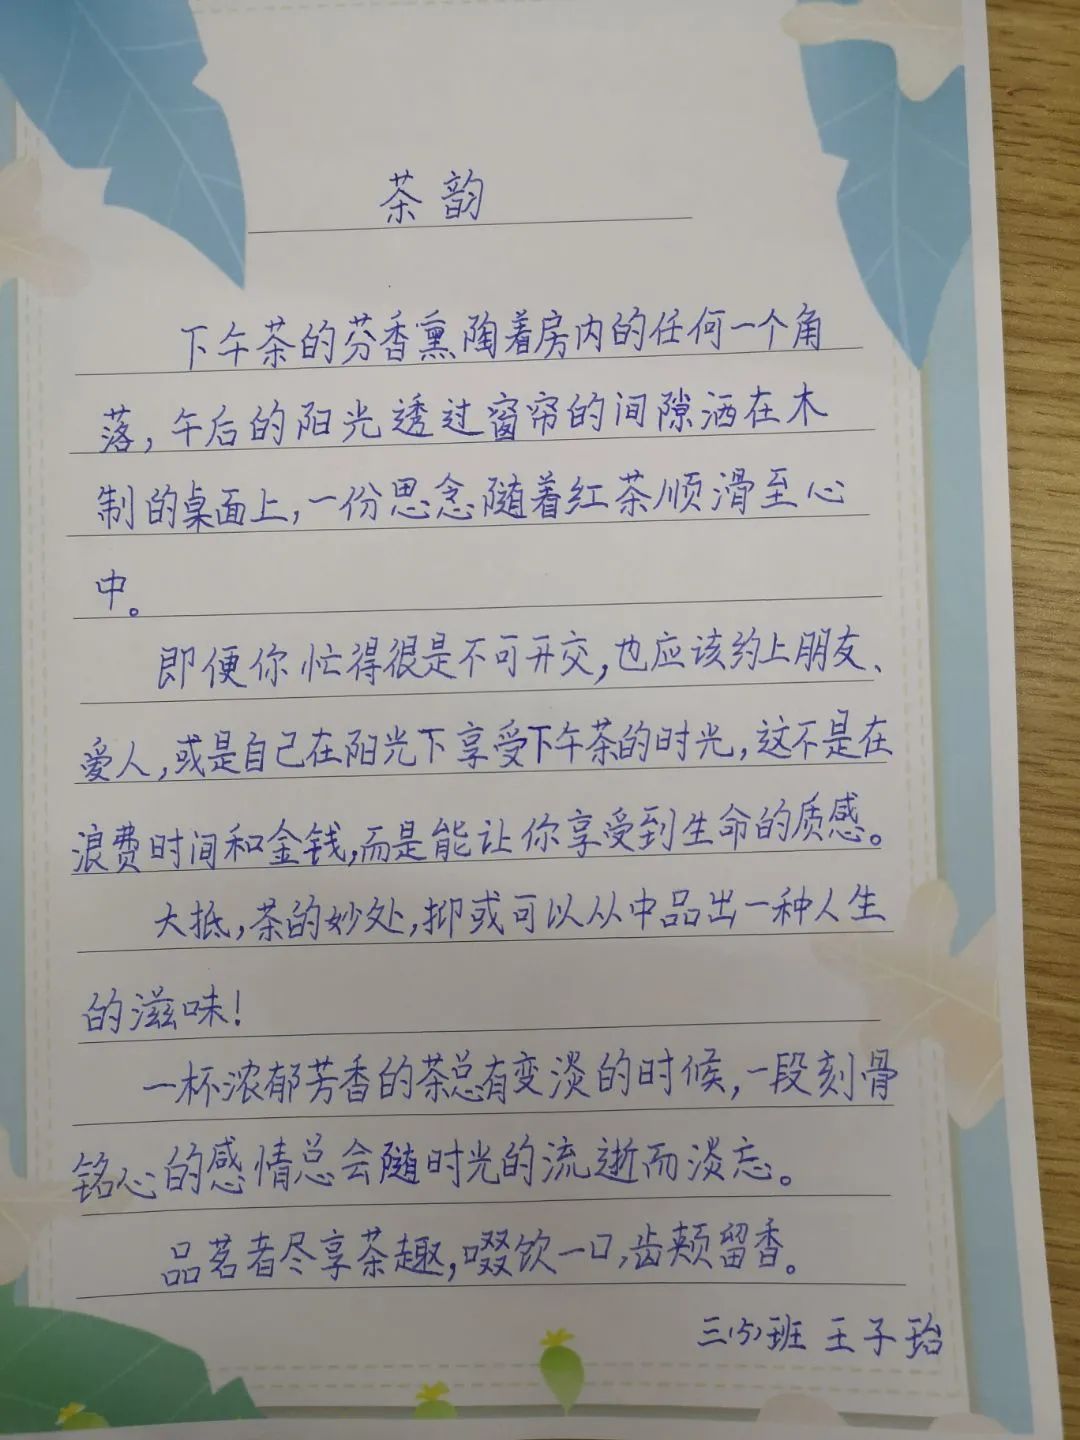 茶韵
下午茶的芬香熏陶着房内的任何一个角
落，午后的阳光透过窗帘的间隙洒在木
制的桌面上，一份思念随着红茶顺滑至心
中。
即便你忙得很是不可开交，也应该约上朋友、
爱人，或是自己在阳光下享受下午茶的时光，这不是在
浪费时间和金钱，而是能让你享受到生命的质感。
大抵，茶的妙处，抑或可以从中品出一种人生
的滋味！
一杯浓郁芳香的茶总有变淡的时候，一段刻骨
铭心的感情总会随时光的流逝而淡忘。
品茗者尽享茶趣，啜饮一口，齿颊留香。
三（5）班 王子珆